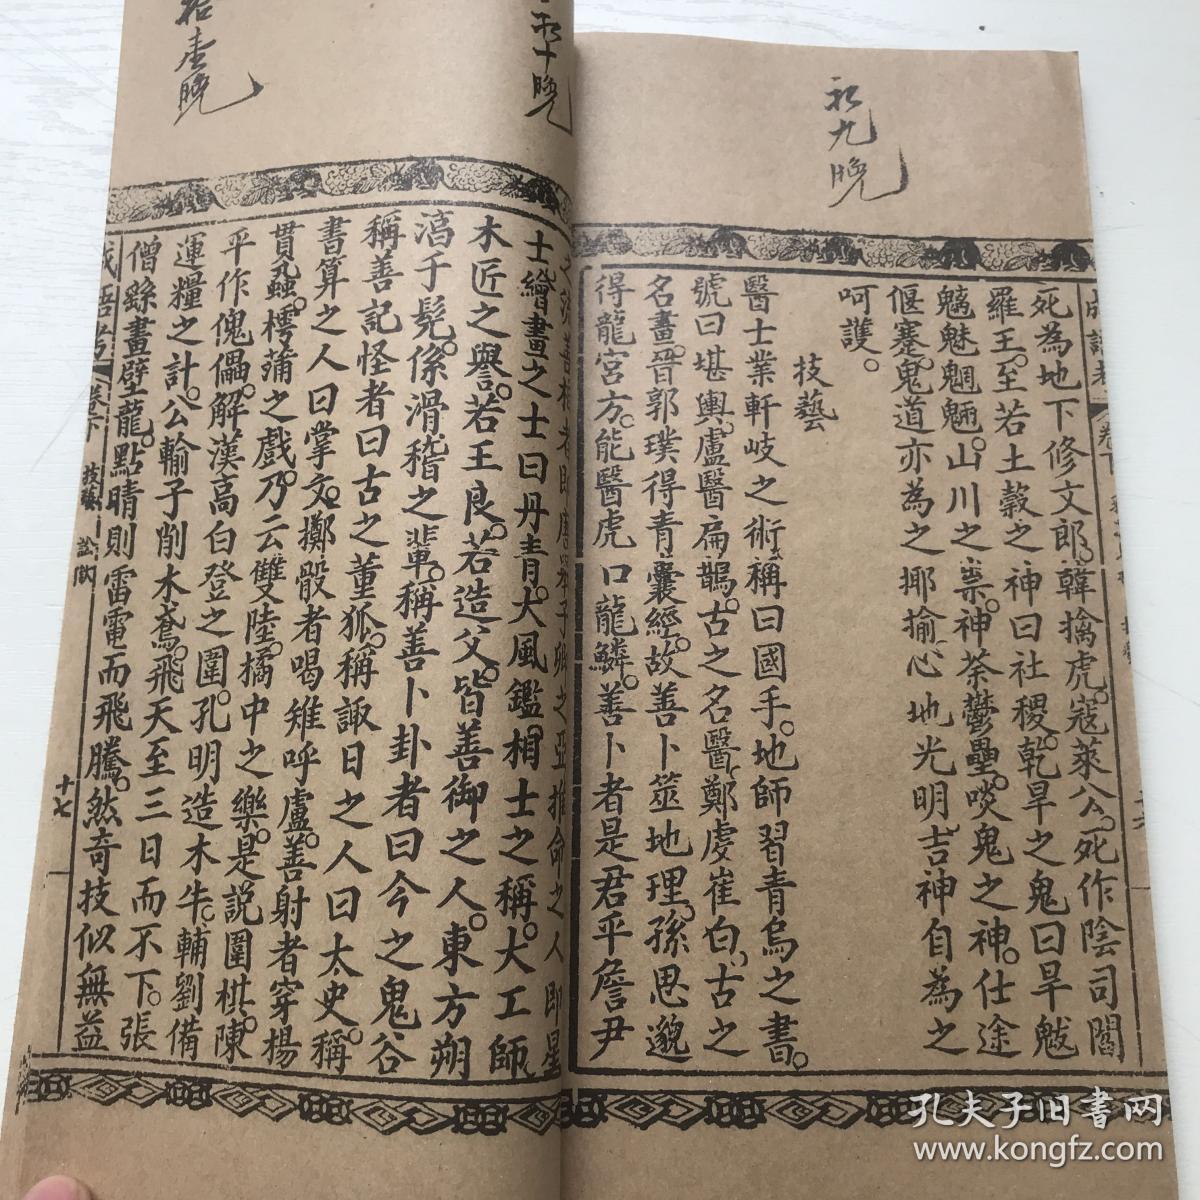 初九晚
死為地下修文郎韓擒虎寇萊公死作陰司閻
羅王至若土穀之神曰社稷乾旱之鬼曰旱魃
魑魅魍魎山川之祟神荼鬱壘啖鬼之神仕途
偃蹇鬼道亦為之揶揄心地光明吉神自為之
呵護。
技藝
醫士業軒岐之術稱曰國手地師習青烏之書
號曰堪輿盧醫扁鵲古之名醫鄭虔崔白古之
名畫晉郭璞得青囊經故善卜筮地理孫思邈
得龍宮方能醫虎口龍鱗善卜者是君平詹尹
十晚
拾壹晚
善相者即唐舉子卿之亞推命之人即星
士繪畫之士曰丹青大風鑑相士之稱大工師
木匠之譽若王良若造父皆善御之人東方朔
淳于髡係滑稽之輩稱善卜卦者曰今之鬼谷
稱善記怪者曰古之董狐稱諏日之人曰太史稱
書算之人曰掌文擲骰者喝雉呼盧善射者穿楊
貫蝨樗蒲之戲乃云雙陸橘中之樂是説圍棋陳
平作傀儡解漢高白登之圍孔明造木牛輔劉備
運糧之計公輸子削木鳶飛天至三日而不下張
僧繇畫壁龍點睛則雷電而飛騰然奇技似無益
成語考 卷下 技藝 訟獄 十七
孔夫子旧书网
www.kongfz.com